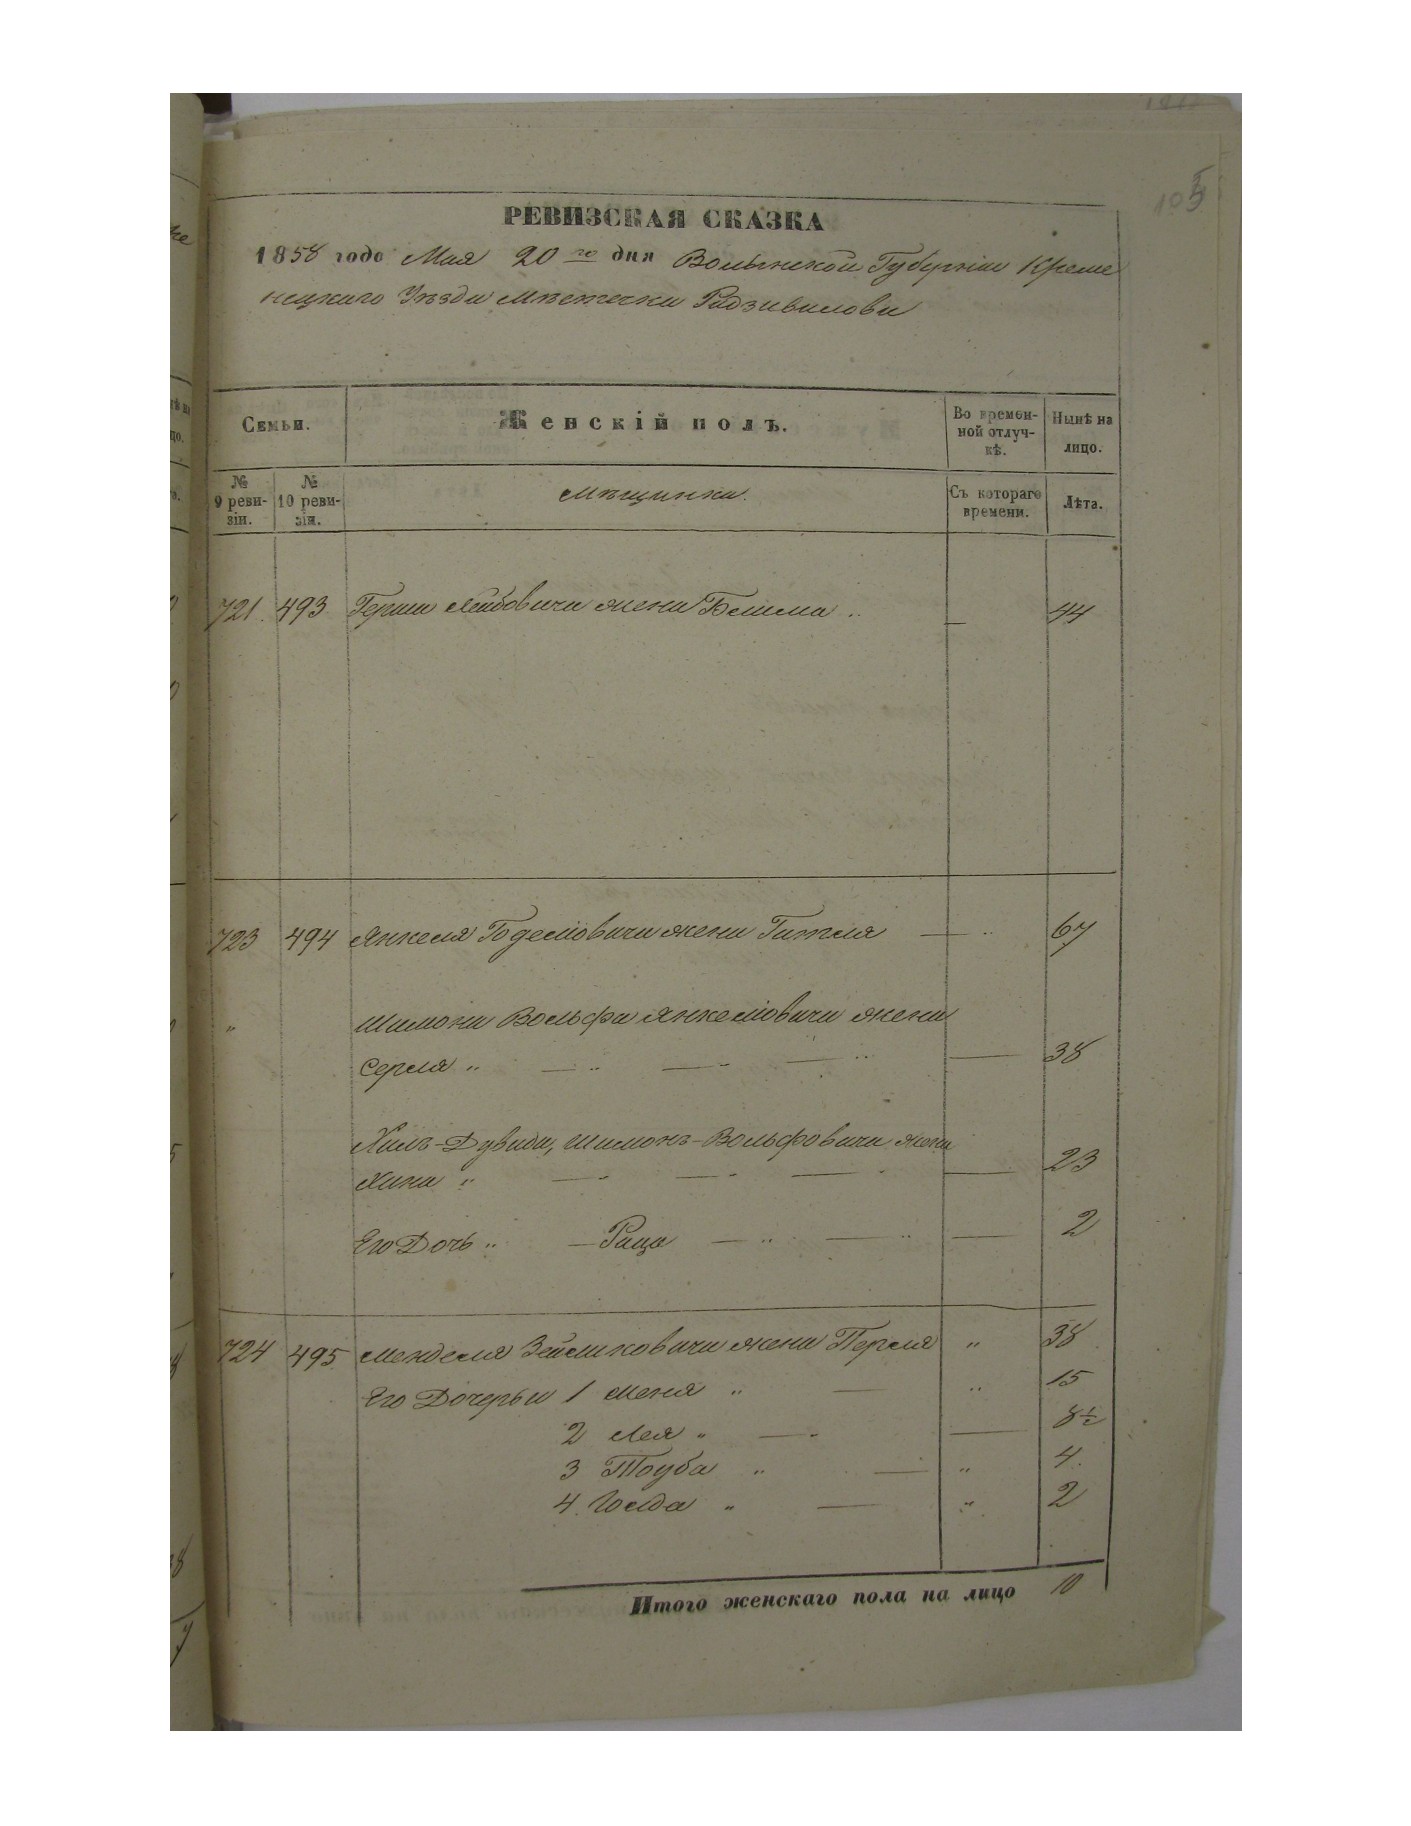 105
РЕВИЗСКАЯ СКАЗКА
1858 года Мая 20го дня Волынской Губерніи Креме
нецкаго Уѣзда мѣстечка Радзивилова
Семьи.
Женскій полъ.
Во времен-
ной отлуч-
кѣ.
Нынѣ на
лицо.
№
9 реви-
зіи.
№
10 реви-
зіи.
Мѣщанки.
Съ котораго
времени.
Лѣта.
721. 493 Герша Лейбовича жена Блима 44
723 494 Янкеля Годелiовича жена Гитля 67
" Шимона Вольфа Янкелiовича жена
Серля " 38
Хаимъ-Дувида, Шимонъ-Вольфовича жена
Хина " 23
Его Дочь " Раца 2
724 495 Менделя Зейликовича жена Перля " 38
Его Дочерьи 1 Меня " 15
2 Лея " 8½
3 Тоуба " 4.
4. Голда " 2
Итого женскаго пола на лицо 10